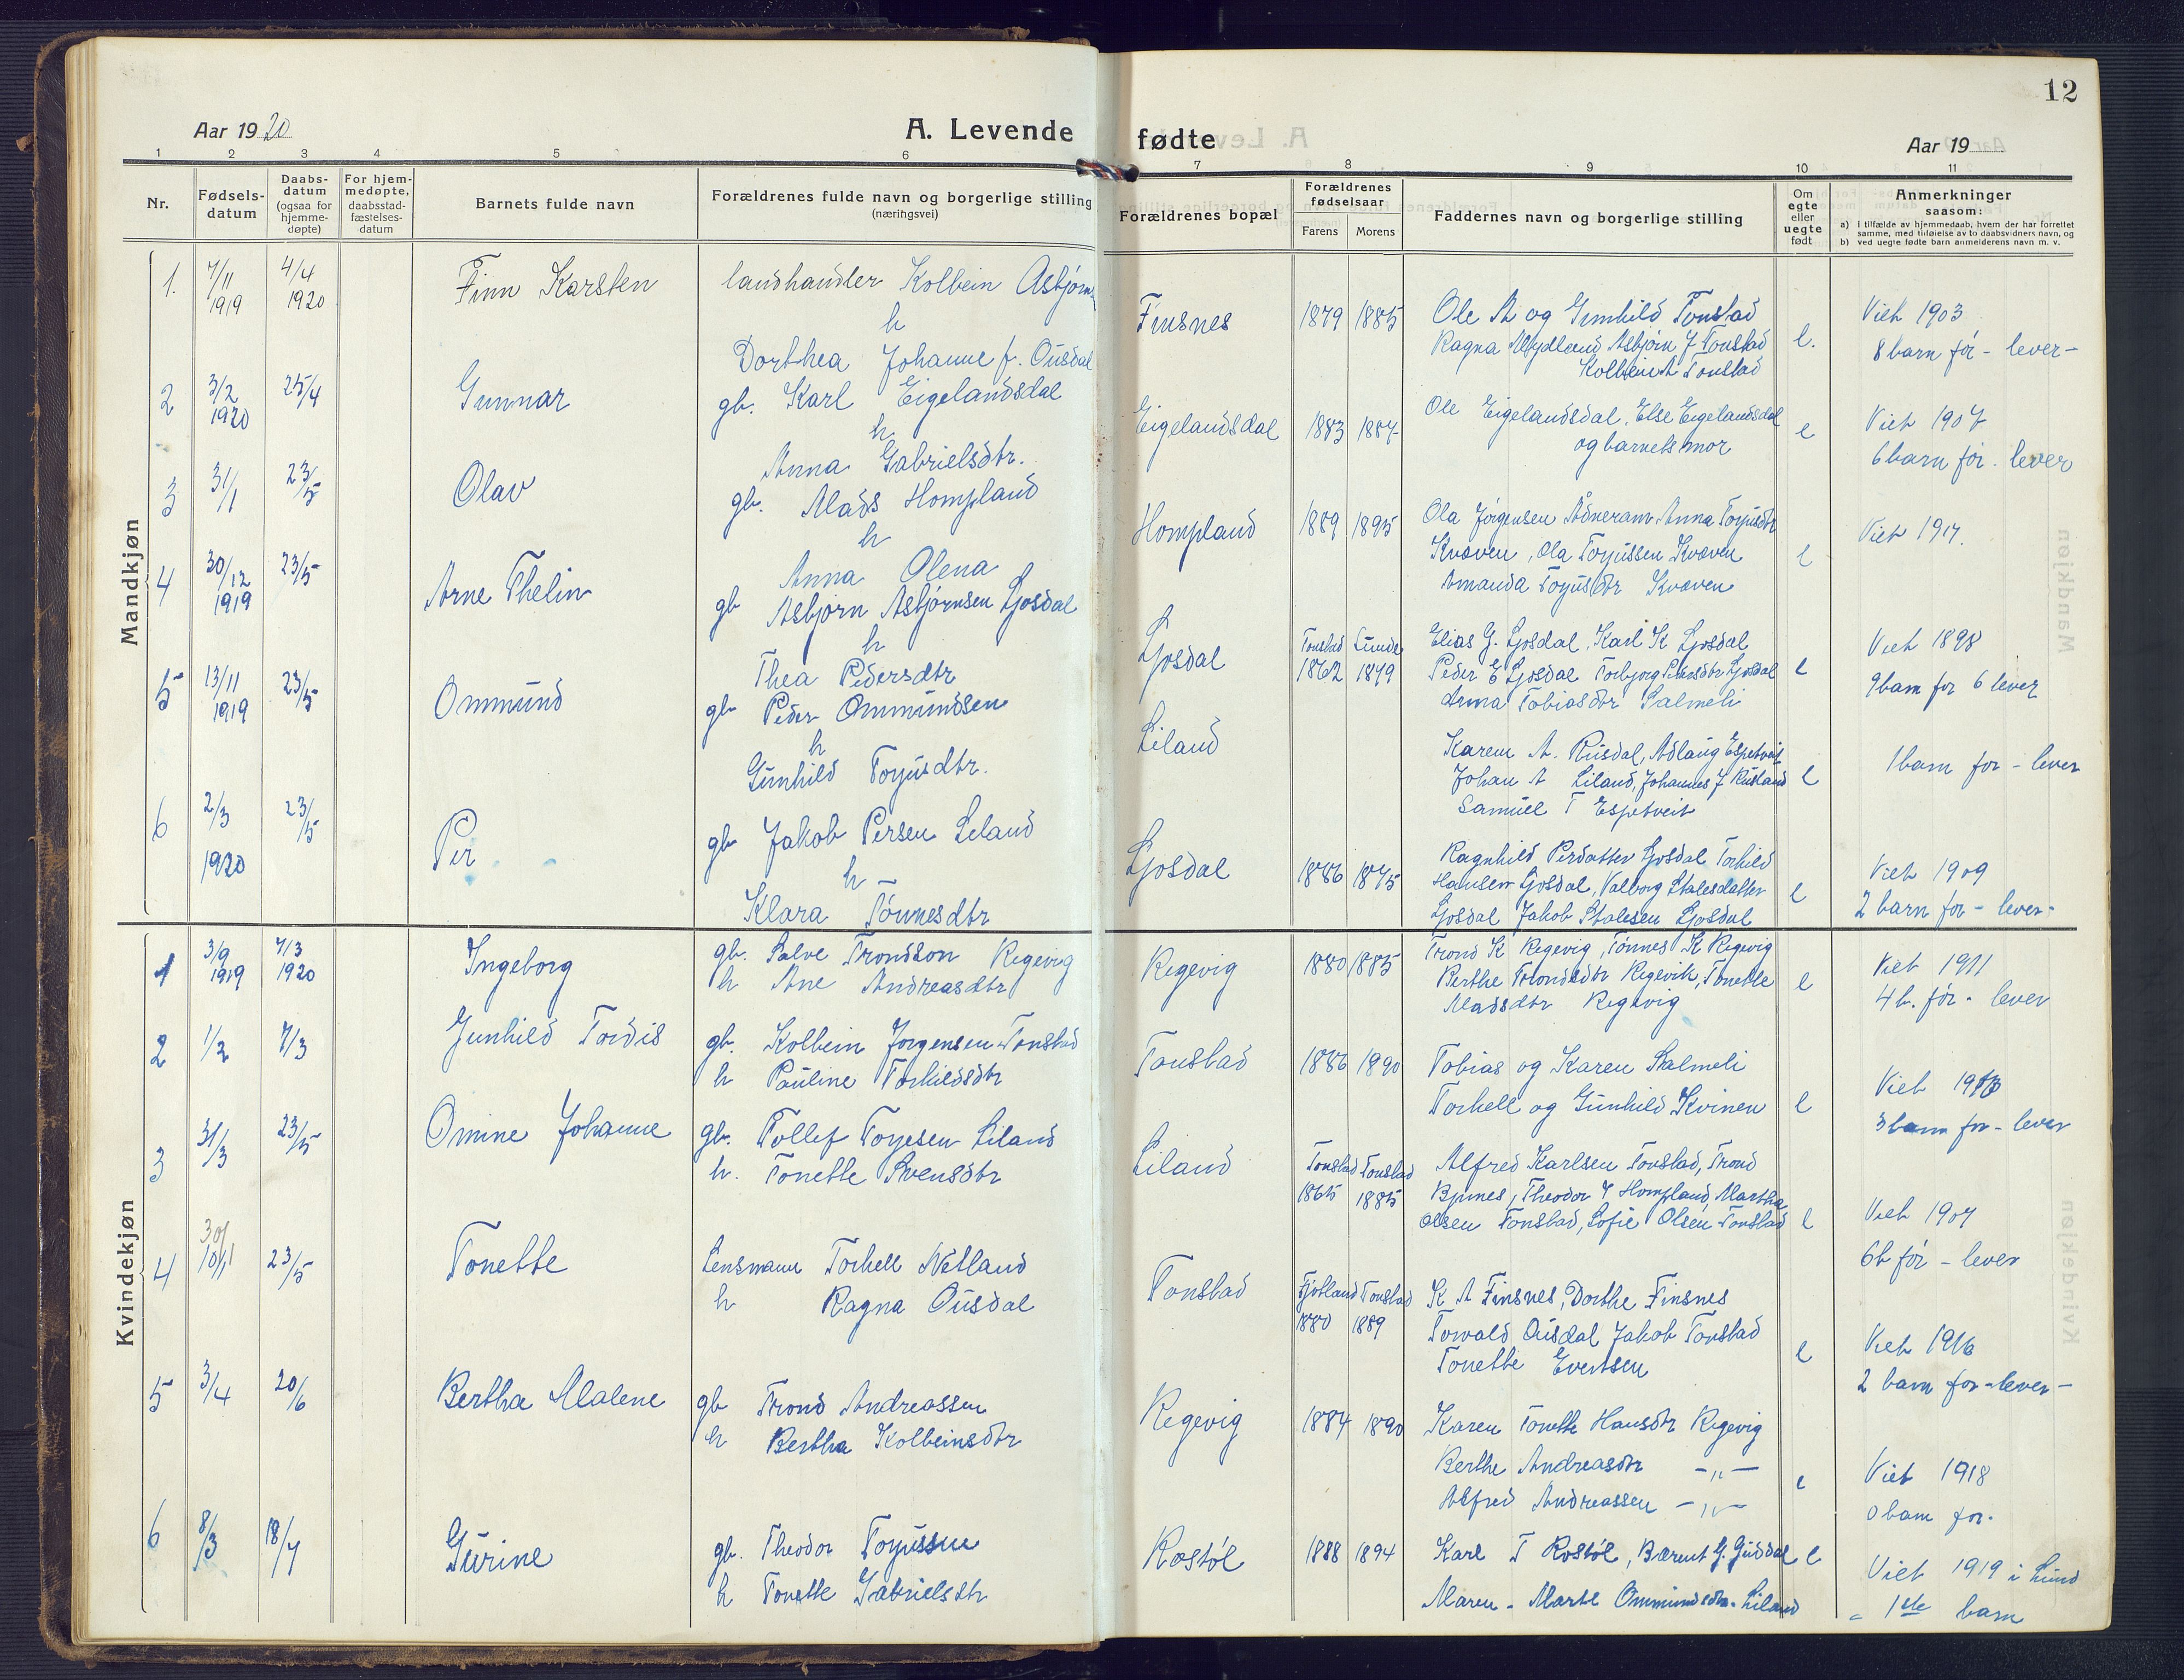 12
Aar 1920
A. Levende fødte
Aar 19
1 2 3 4 5 6 7 8 9 10 11
Nr.
Fødsels-
datum
Daabs-
datum
(ogsaa for
hjemme-
døpte)
For hjem-
medøpte,
daabsstad-
fæstelses-
datum
Barnets fulde navn
Forældrenes fulde navn og borgerlige stilling
(næringsvei)
Forældrenes bopæl
Forældrenes
fødselsaar
Farens Morens
Faddernes navn og borgerlige stilling
Om
egte
eller
uegte
født
Anmerkninger
saasom:
a) I tilfælde av hjemmedaab, hvem der har forrettet
samme, med tilføielse av to daabsvidners navn, og
b) ved uegte fødte barn anmelderens navn m. v.
Mandkjøn
1. 7/11 1919 4/4 1920 Finn Karsten landhandler Kolbein Asbjørns
h
Dorthea Johanne f. Ousdal
Finsnes 1879 1885 Ole A og Gunhild Tonstad
Ragna Mydland Asbjørn J Tonstad
Kolbein A Tonstad
e. Viet 1903
8 barn før - lever -
2 3/2 1920 25/4 Gunnar gb. Karl Eigelandsdal
h
Anna Gabrielsdtr.
Eigelandsdal 1883 1887 Ole Eigelandsdal, Else Eigelandsdal
og barnets mor
e Viet 1907
6 barn før. lever
3 31/1 23/5 Olav gb. Mads Hompland
h
Anna Olena
Hompland 1889 1895 Ola Jørgensen Ådneram Anna Torjusdtr
Kvæven, Ola Torjussen Kvæven
Amanda Torjusdtr Kvæven
e Viet 1917.
4 30/12 1919 23/5 Arne Thelin gb Asbjørn Asbjørnsen Ljosdal
h
Thea Pedersdtr
Ljosdal Tonstad Lunde
1862 1879 Elias G. Ljosdal, Karl K Ljosdal
Peder E Ljosdal Torbjorg Pedersdtr Ljosdal
Anna Tobiasdtr Salmeli
e Viet 1898
9 barn før 6 lever
5 13/11 1919 23/5 Ommund gb Peder Ommundsen
h
Gunhild Torjusdtr.
Liland Karen A. Rusdal, Adlaug Espetveit
Johan A Liland, Johannes J Rusdal
Samuel T Espetveit
e 1 barn før - lever
6 2/3 1920 23/5 Per gb Jakob Persen Liland
h
Klara Tønnesdtr
Ljosdal 1886 1875 Ragnhild Persdatter Ljosdal Torkild
Hansen Ljosdal, Valborg Stalesdatter
Ljosdal Jakob Stalesen Ljosdal
e Viet 1909
2 barn før - lever -
Kvindekjøn
1 3/9 1919 7/3 1920 Ingeborg gb. Salve Trondson Regevig
h Ane Andreasdtr
Regevig 1880 1885 Trond K Regevig, Tønnes K Regevig
Berthe Trondsdtr Regevik, Tonette
Madsdtr Regevig
e Viet 1911
4 b. før - lever
2 1/2 7/3 Gunhild Tordis gb. Kolbein Jørgensen Tonstad
h Pauline Torkildsdtr
Tonstad 1886 1890 Tobias og Karen Salmeli
Torkell og Gunhild Kvinen
e Viet
3 barn før - lever
3 31/3 23/5 Omine Johanne gb. Tollef Torjesen Liland
h. Tonette Svensdtr
Liland Tonstad Tonstad
1865 1885 Alfred Karlsen Tonstad, Trond
Bjunes, Theodor T Hompland, Martha
Olsen Tonstad, Sofie Olsen Tonstad
e Viet 1907
6 b før - lever
30/1
4 10/1 23/5 Tonette Lensmann Torkell Netland
h Ragna Ousdal
Tonstad Fjotland Tonstad
1880 1889 K A Finsnes, Dorthe Finsnes
Torvald Ousdal Jakob Tonstad
Tonette Evertsen
e Viet 1916
2 barn før - lever -
5 3/4 20/6 Bertha Malene gb Trond Andreassen
h Bertha Kolbeinsdtr
Regevig 1884 1890 Karen Tonette Hansdtr Regevig
Berthe Andreasdtr - " -
Alfred Andreassen - " -
e Viet 1918
0 barn før.
6 8/3 18/7 Gurine gb. Theodor Torjussen
h Tonette Gabrielsdtr
Rostøl 1888 1894 Karl T Rostøl, Bærent G. Gusdal
Maren - Marte Ommundsdtr. Liland
e Viet 1919 i Lund
- 1ste barn